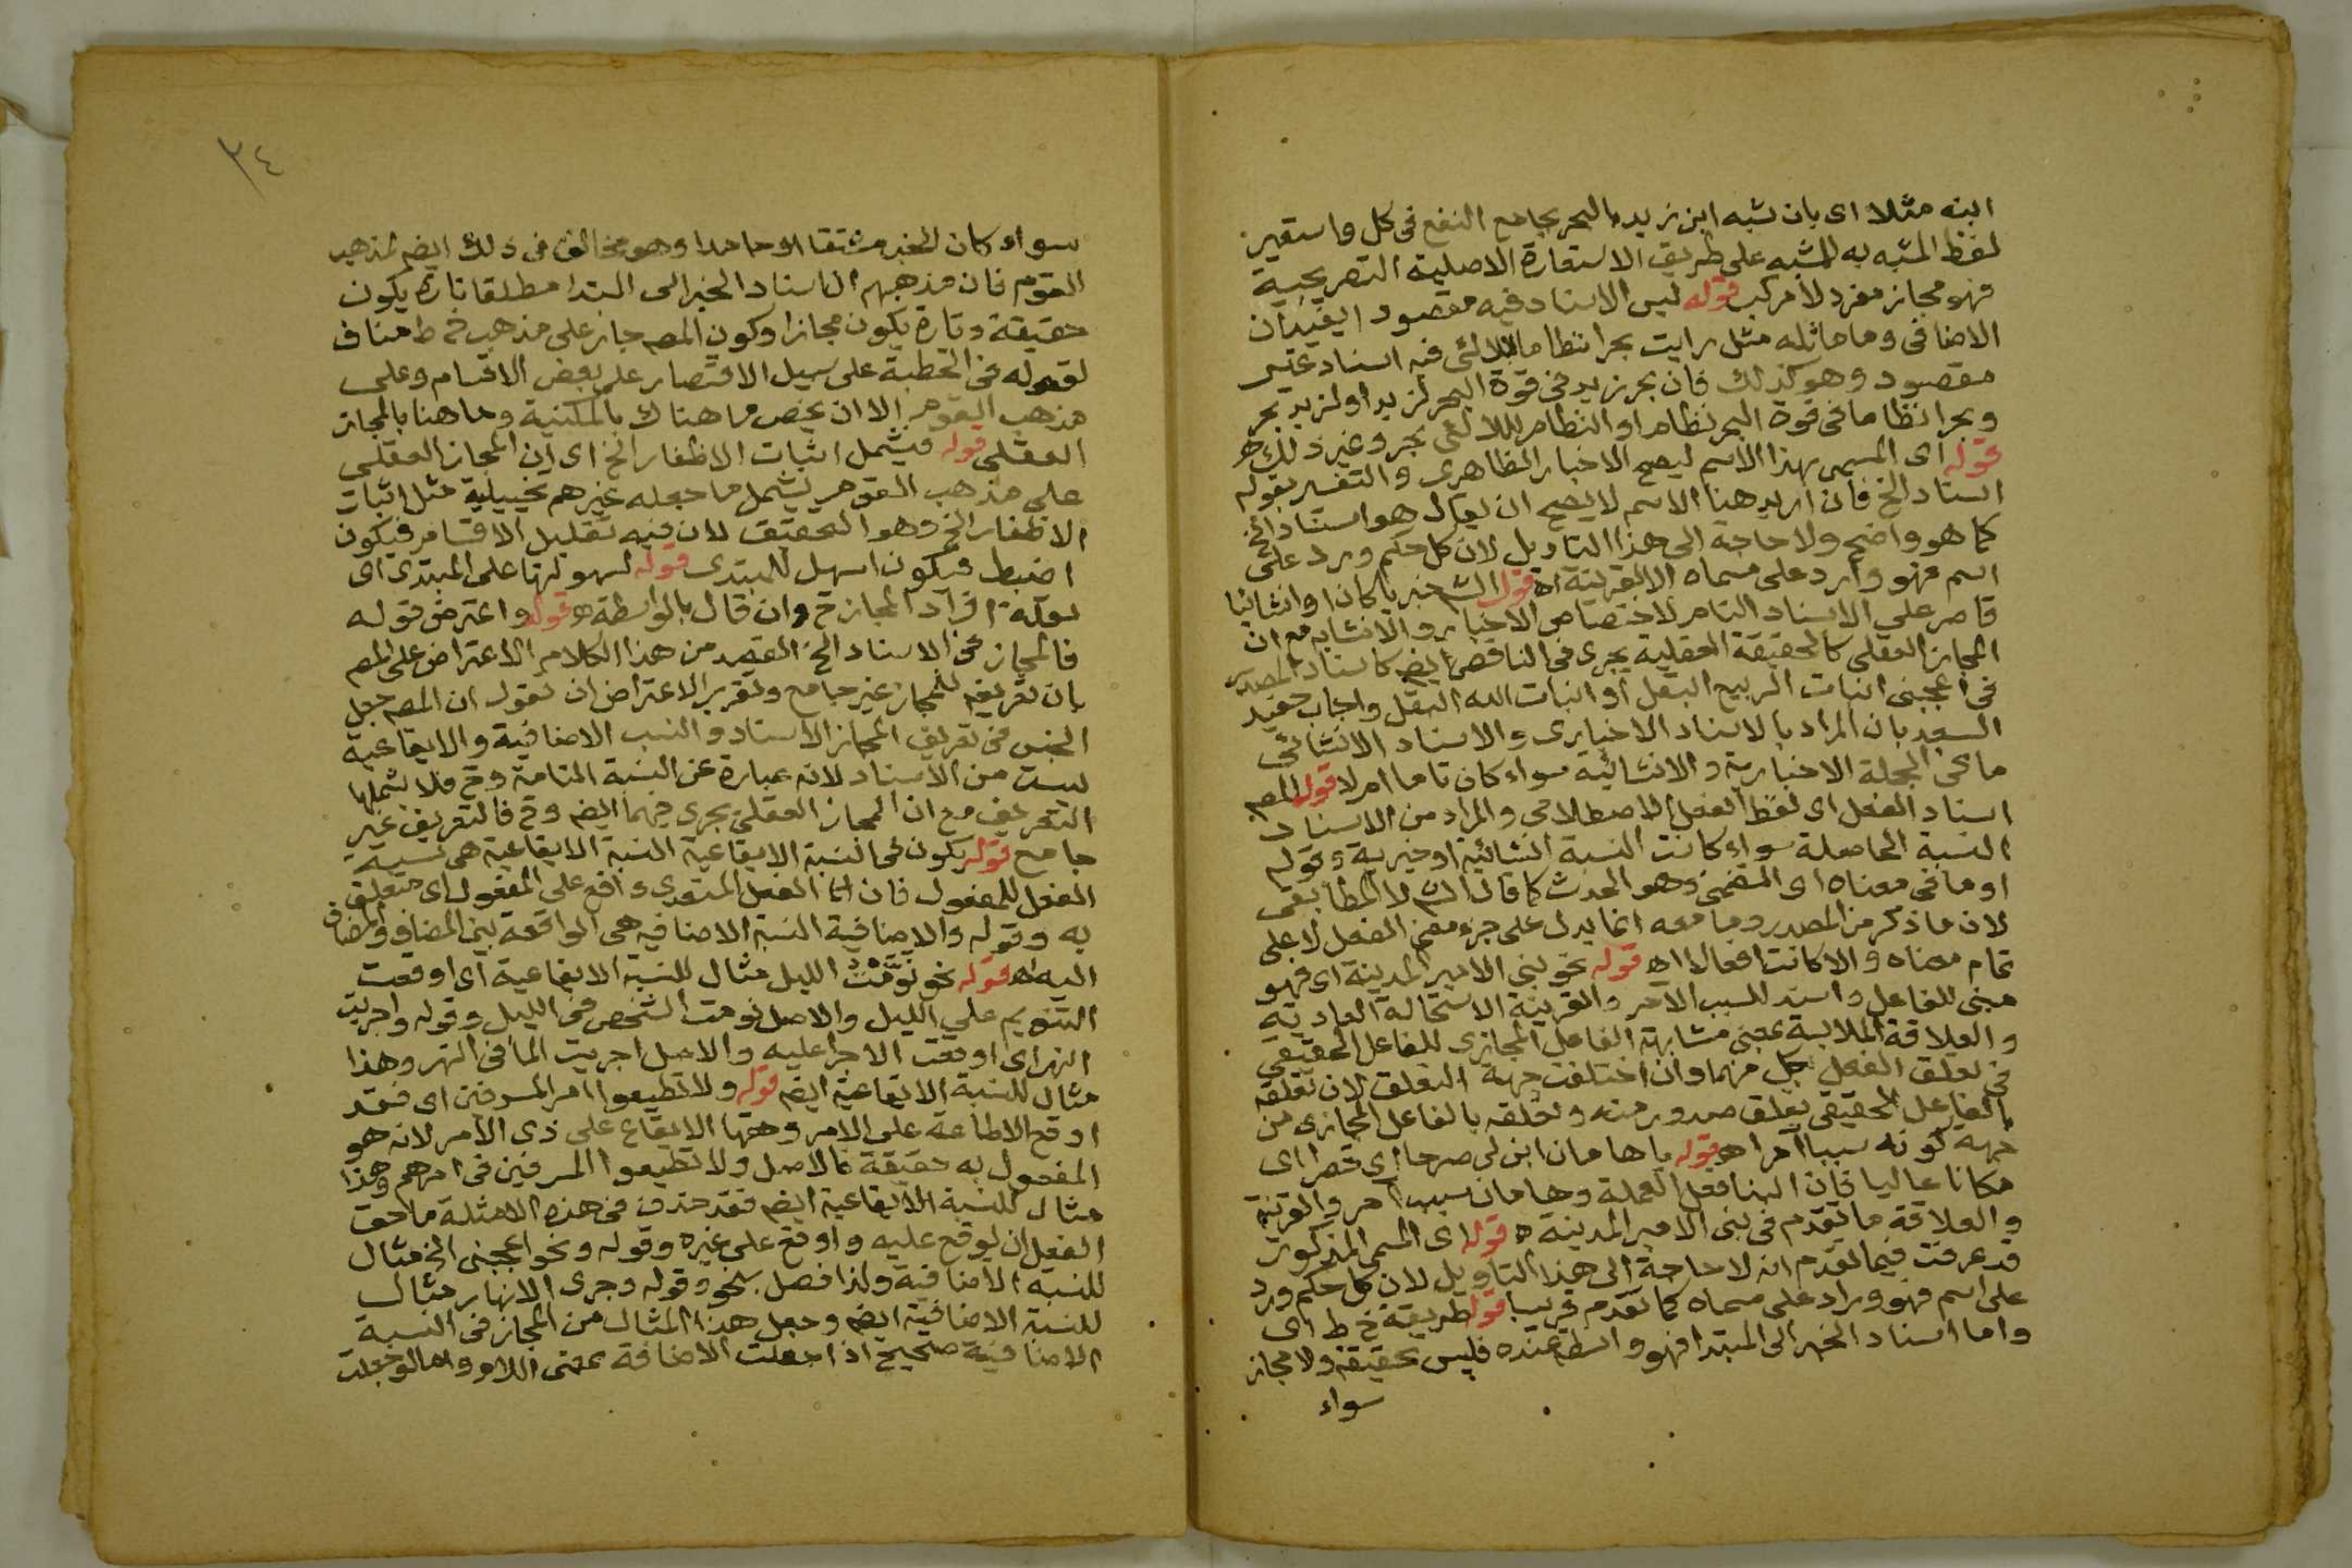 ابنه مثلا اى بان شبه ابن زيد بالبحر بجامع النفع فى كل واستعير
لفظ المشبه به للمشبه على طريق الاستعارة الاصلية التصريحية
فهو مجاز مفرد لا مركب قوله ليس الاسناد فيه مقصود ا يفيد ان
الاضافى وما ماثله مثل رايت بحرا نظاما للالئى فيه اسناد غير
مقصود وهو كذلك فان بحر زيد فى قوة البحر لزيد او لزيد بحر
وبحرا نظاما فى قوة البحر نظام او النظام لللالئى بحر وغير ذلك اه
قوله اى المسمى بهذا الاسم ليصح الاخبار الظاهرى والتفسير بقوله
اسناد الخ فان اريد هنا الاسم لا يصح ان يقال هو اسناد الخ
كما هو واضح ولا حاجة الى هذا التاويل لان كل حكم ورد على
اسم فهو وارد على مسماه الا لقرينة اه قول الش خبريا كان او انشائيا
قاصر على الاسناد التام لاختصاص الاخبار والانشا به مع ان
المجاز العقلى كالحقيقة العقلية يجرى فى الناقص ايضا كاسناد المصدر
فى اعجبنى انبات الربيع البقل او انبات الله البقل واجاب حفيد
السعد بان المراد بالاسناد الاخبارى والاسناد الانشائى
ما فى الجملة الاخبارية والانشائية سواء كان تاما ام لا قوله المص
اسناد الفعل اى لفظ الفعل الاصطلاحى والمراد من الاسناد
النسبة الحاصلة سواء كانت النسبة انشائية او خبرية وقوله
او ما فى معناه اى التضمنى وهو الحدث كما قال الش لا المطابقى
لان ما ذكر من المصدر وما معه انما يدل على جزء معنى الفعل لا على
تمام معناه والا كانت افعالا اه قوله نحو بنى الامير المدينة اى فهو
مبنى للفاعل واسند للسبب الآمر والقرينة الاستحالة العادية
والعلاقة الملابسة بمعنى مشابهة الفاعل المجازى للفاعل الحقيقى
فى تعلق الفعل بكل منهما وان اختلفت جهة التعلق لان تعلقه
بالفاعل الحقيقى تعلق صدور منه وتعلقه بالفاعل المجازى من
جهة كونه سببا آمرا اه قوله يا هامان ابن لى صرحا اى قصرا اى
مكانا عاليا فان البنا فعل العملة وهامان سبب آمر والقرينة
والعلاقة ما تقدم فى بنى الامير المدينة اه قوله اى المسمى المذكور
قد عرفت فيما تقدم انه لا حاجة الى هذا التاويل لان كل حكم ورد
على اسم فهو وراد على مسماه كما تقدم قريبا قوله طريقة خ ط اى
واما اسناد الخبر الى المبتدا فهو واسطة عنده فليس بحقيقة ولا مجاز
سواء
٣٤
سواء كان الخبر مشتقا او جامدا وهو مخالف فى ذلك ايضا لمذهب
القوم فان مذهبهم ان اسناد الخبر الى المبتدا مطلقا تارة يكون
حقيقة وتارة يكون مجازا وكون المص جار على مذهب خ ط مناف
لقوله فى الخطبة على سبيل الاقتصار على بعض الاقسام وعلى
مذهب القوم الا ان يخص ما هناك بالمكنية وما هنا بالمجاز
العقلى قوله فيشمل اثبات الاظفار الخ اى ان المجاز العقلى
على مذهب القوم يشمل ما جعله غيرهم تخييلية مثل اثبات
الاظفار الخ وهو التحقيق لان فيه تقليل الاقسام فيكون
اضبط فيكون اسهل للمبتدى قوله لسهولتها على المبتدى اى
لقلة افراد المجاز ح وان قال بالواسطة اه قوله واعترض قوله
فالمجاز فى الاسناد الخ القصد من هذا الكلام الاعتراض على المص
بان تعريفه للمجاز غير جامع وتقرير الاعتراض ان تقول ان المص جعل
الجنس فى تعريف المجاز الاسناد والنسب الاضافية والايقاعية
ليست من الاسناد لانه عبارة عن النسبة التامة وح فلا يشملها
التعريف مع ان المجاز العقلى يجرى فيهما ايضا وح فالتعريف غير
جامع قوله يكون فى النسبة الايقاعية النسبة الايقاعية هى نسبة
الفعل للمفعول فان الفعل المتعدى واقع على المفعول اى متعلق
به وقوله والاضافية النسبة الاضافيه هى الواقعة بين المضاف والمضاف
اليه اه قوله نحو نومت الليل مثال للنسبة الايقاعية اى اوقعت
التنويم على الليل والاصل نومت الشخص فى الليل وقوله واجريت
النهر اى اوقعت الاجرا عليه والاصل اجريت الما فى النهر وهذا
مثال للنسبة الايقاعية ايضا قوله ولا تطيعوا امر المسرفين اى فقد
اوقع الاطاعة على الامر وحقها الايقاع على ذى الامر لانه هو
المفعول به حقيقة فالاصل ولا تطيعوا المسرفين فى امرهم وهذا
مثال للنسبة الايقاعية ايضا فقد حذف فى هذه الامثلة ما حق
الفعل ان يوقع عليه واوقع على غيره وقوله ونحو اعجبنى الخ مثال
للنسبة الاضافية ولذا فصل بنحو وقوله وجرى الانهار مثال
للنسبة الاضافية ايضا وجعل هذا المثال من المجاز فى النسبة
الاضافية صحيح اذا جعلت الاضافة بمعنى اللام واما لو جعلت